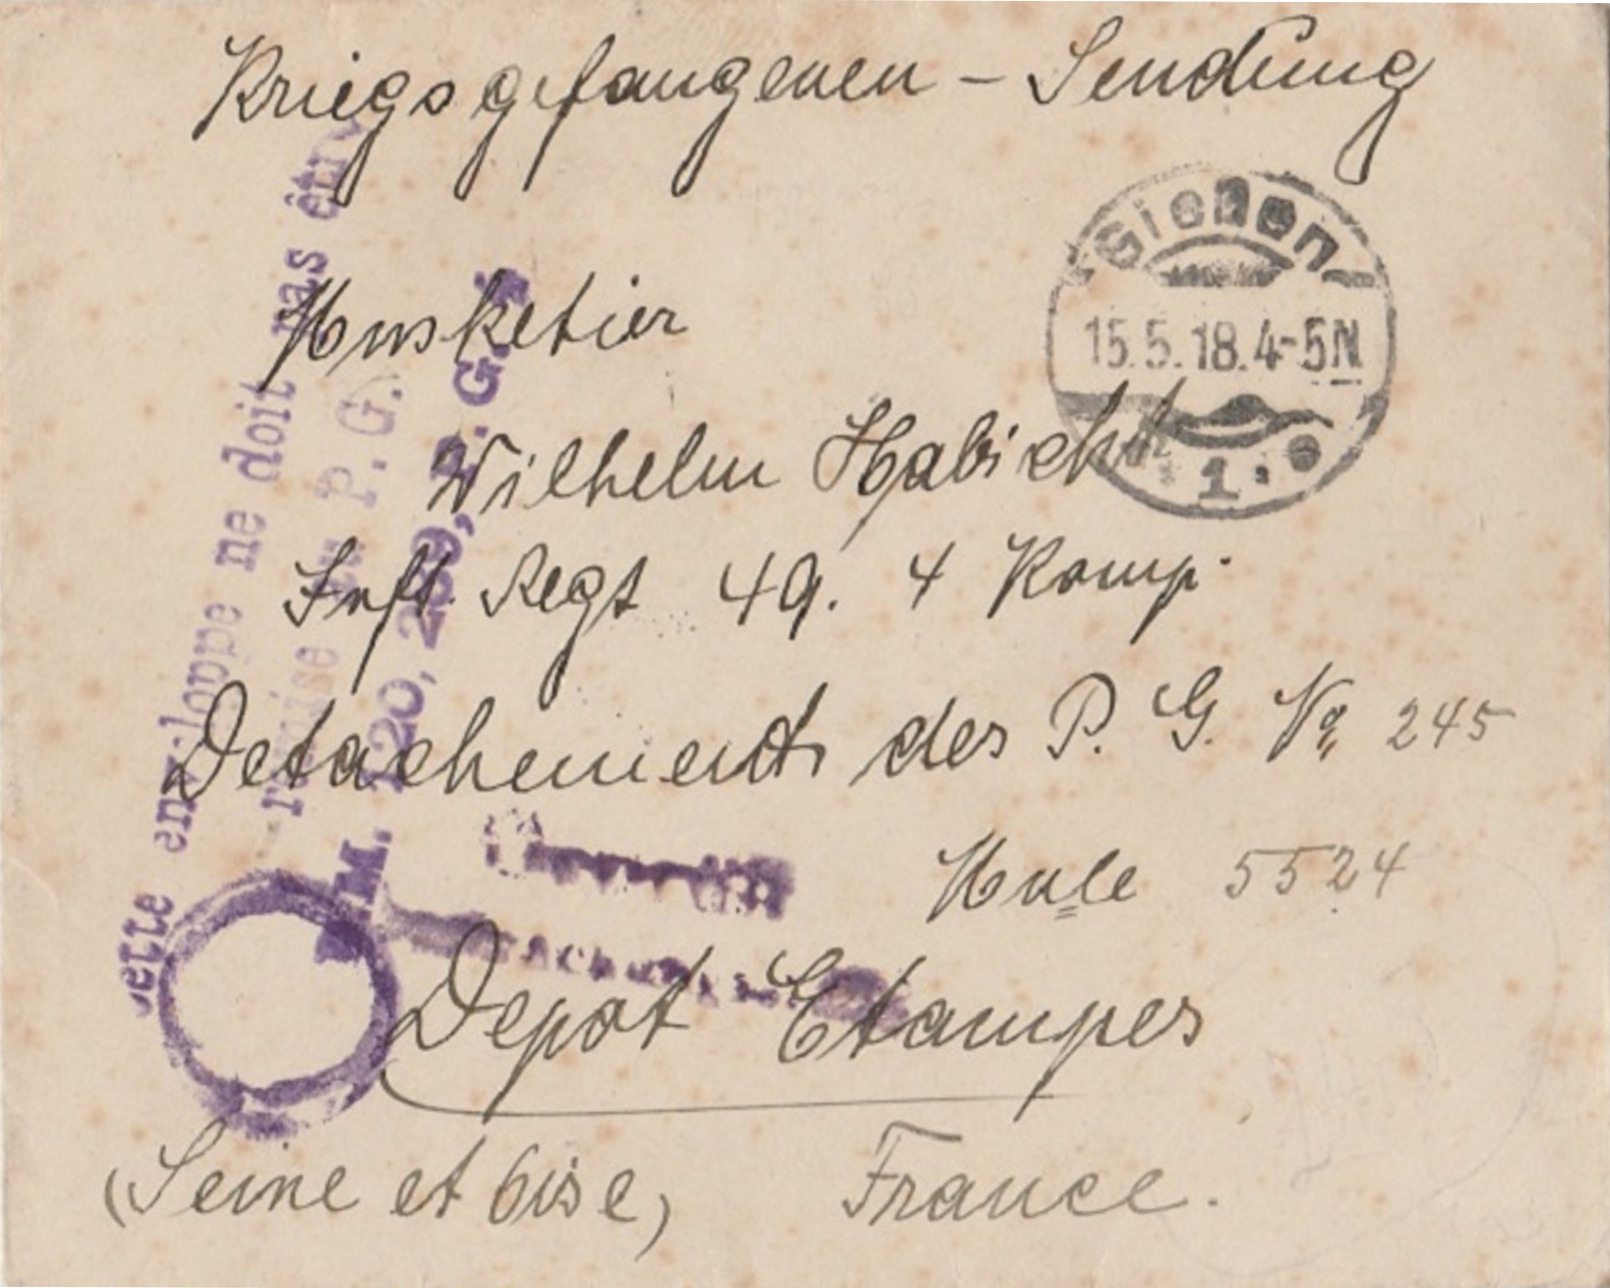 Kriegsgefangenen - Sendung
Gießen
15.5.18.4-5N
1.
Musketier
Wilhelm Habicht
Inft. Regt 49. 4 Komp.
Detachement des P. G. No 245
Mule 5524
Depot Etampes
(Seine et Oise) France.
Cette enveloppe ne doit pas être
remise au P. G.
M. 120, 239, P. G.